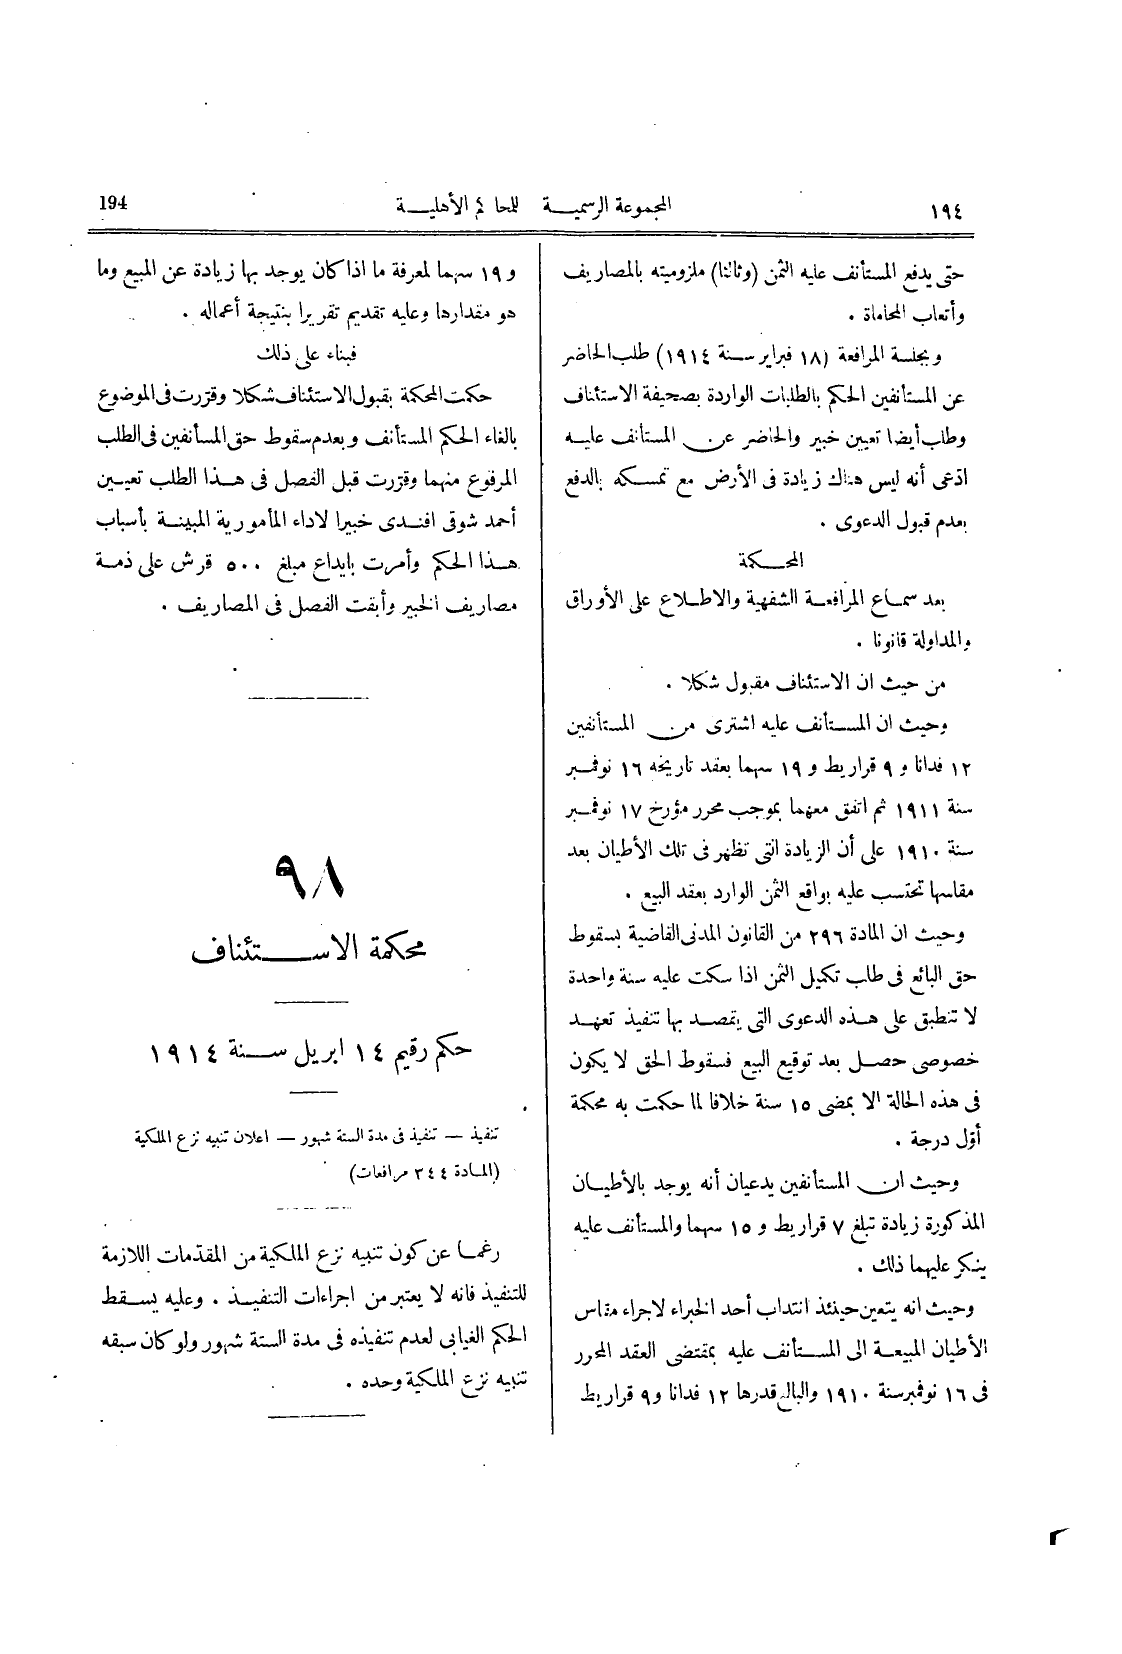 ١٩٤ المجموعة الرسمية للمحاكم الأهلية 194
حتى يدفع المستأنف عليه الثمن (وثالثا) ملزوميته بالمصاريف
وأتعاب المحاماة .
وبجلسة المرافعة (١٨ فبراير سنة ١٩١٤) طلب الحاضر
عن المستأنفين الحكم بالطلبات الواردة بصحيفة الاستئناف
وطلب أيضا تعيين خبير والحاضر عن المستأنف عليه
ادّعى أنه ليس هناك زيادة فى الأرض مع تمسكه بالدفع
بعدم قبول الدعوى .
المحكمة
بعد سماع المرافعة الشفهية والاطلاع على الأوراق
والمداولة قانونا .
من حيث ان الاستئناف مقبول شكلا .
وحيث ان المستأنف عليه اشترى من المستأنفين
١٢ فدانا و ٩ قراريط و ١٩ سهما بعقد تاريخه ١٦ نوفمبر
سنة ١٩١١ ثم اتفق معهما بموجب محرر مؤرخ ١٧ نوفمبر
سنة ١٩١٠ على أن الزيادة التى تظهر فى تلك الأطيان بعد
مقاسها تحتسب عليه بواقع الثمن الوارد بعقد البيع .
وحيث ان المادة ٢٩٦ من القانون المدنى القاضية بسقوط
حق البائع فى طلب تكميل الثمن اذا سكت عليه سنة واحدة
لا تنطبق على هذه الدعوى التى يقصد بها تنفيذ تعهد
خصوصى حصل بعد توقيع البيع فسقوط الحق لا يكون
فى هذه الحالة الا بمضى ١٥ سنة خلافا لما حكمت به محكمة
أوّل درجة .
وحيث ان المستأنفين يدعيان أنه يوجد بالأطيان
المذكورة زيادة تبلغ ٧ قراريط و ١٥ سهما والمستأنف عليه
ينكر عليهما ذلك .
وحيث انه يتعين حينئذ انتداب أحد الخبراء لاجراء مقاس
الأطيان المبيعة الى المستأنف عليه بمقتضى العقد المحرر
فى ١٦ نوفمبر سنة ١٩١٠ والبالغ قدرها ١٢ فدانا و٩ قراريط
و١٩ سهما لمعرفة ما اذا كان يوجد بها زيادة عن المبيع وما
هو مقدارها وعليه تقديم تقريرا بنتيجة أعماله .
فبناء على ذلك
حكمت المحكمة بقبول الاستئناف شكلا وقرّرت فى الموضوع
بالغاء الحكم المستأنف وبعدم سقوط حق المسأنفين فى الطلب
المرفوع منهما وقرّرت قبل الفصل فى هذا الطلب تعيين
أحمد شوقى افندى خبيرا لاداء المأمورية المبينة بأسباب
هذا الحكم وأمرت بايداع مبلغ ٥٠٠ قرش على ذمة
مصاريف الخبير وأبقت الفصل فى المصاريف .
٩٨
محكمة الاستئناف
حكم رقيم ١٤ ابريل سنة ١٩١٤
تنفيذ — تنفيذ فى مدة الستة شهور — اعلان تنبيه نزع الملكية
(المادة ٣٤٤ مرافعات)
رغما عن كون تنبيه نزع الملكية من المقدّمات اللازمة
للتنفيذ فانه لا يعتبر من اجراءات التنفيذ . وعليه يسقط
الحكم الغيابى لعدم تنفيذه فى مدة الستة شهور ولو كان سبقه
تنبيه نزع الملكية وحده .